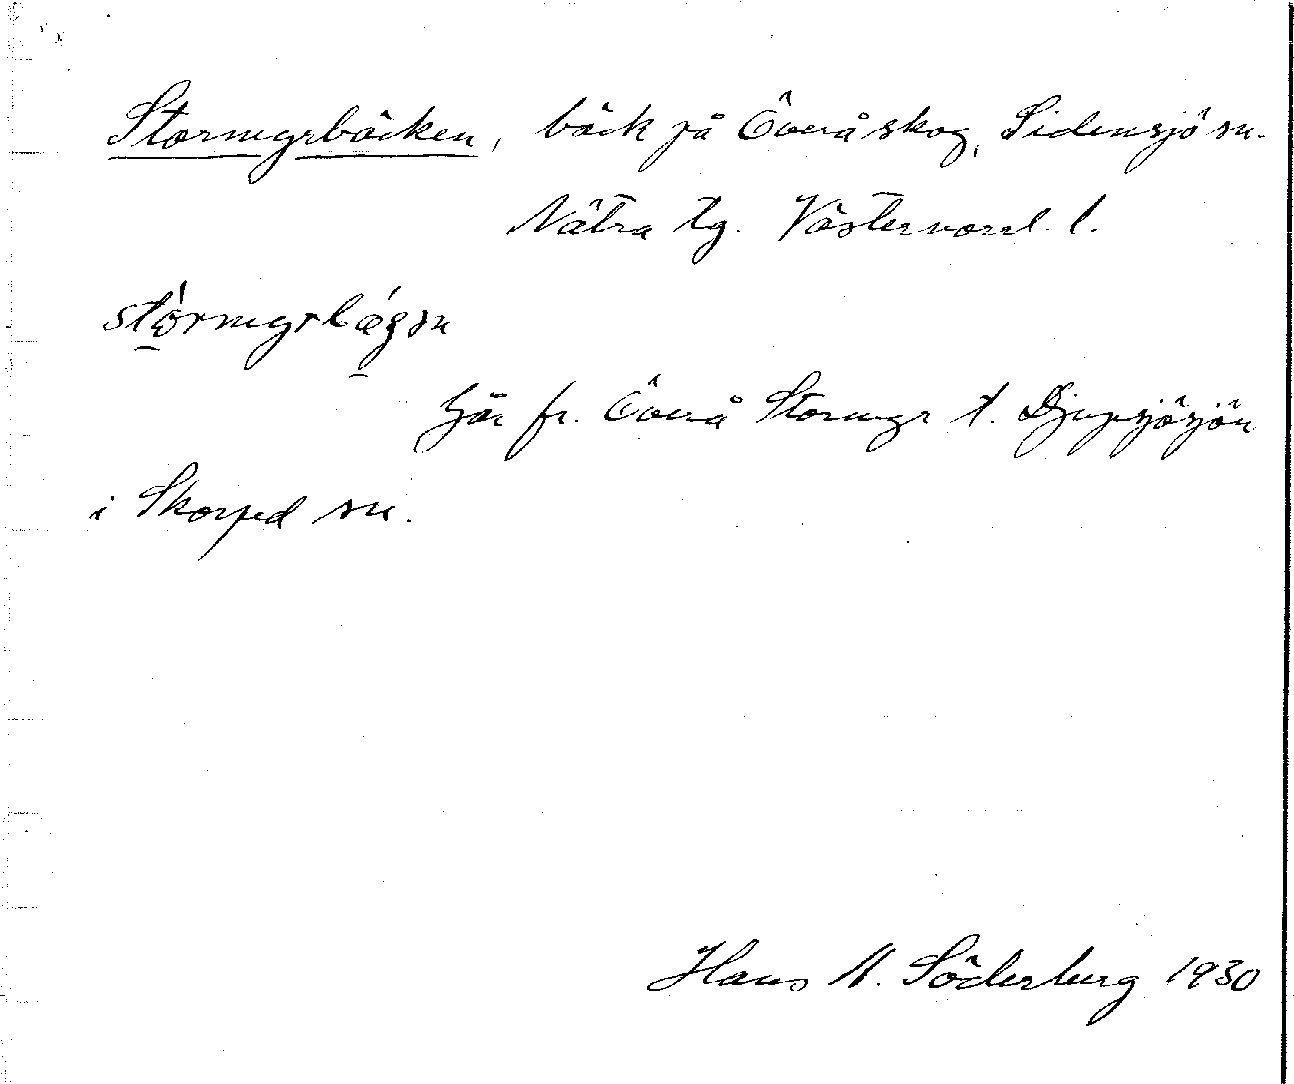 Stormyrbäcken, bäck på Överå skog, Sidensjö sn.
Nätra tg. Västernorrl. l.
stórmyrbǽgɜn
Går fr. Överå Stormyr t. Djupsjösjön
i Skorped sn.
Hans A. Söderberg 1930